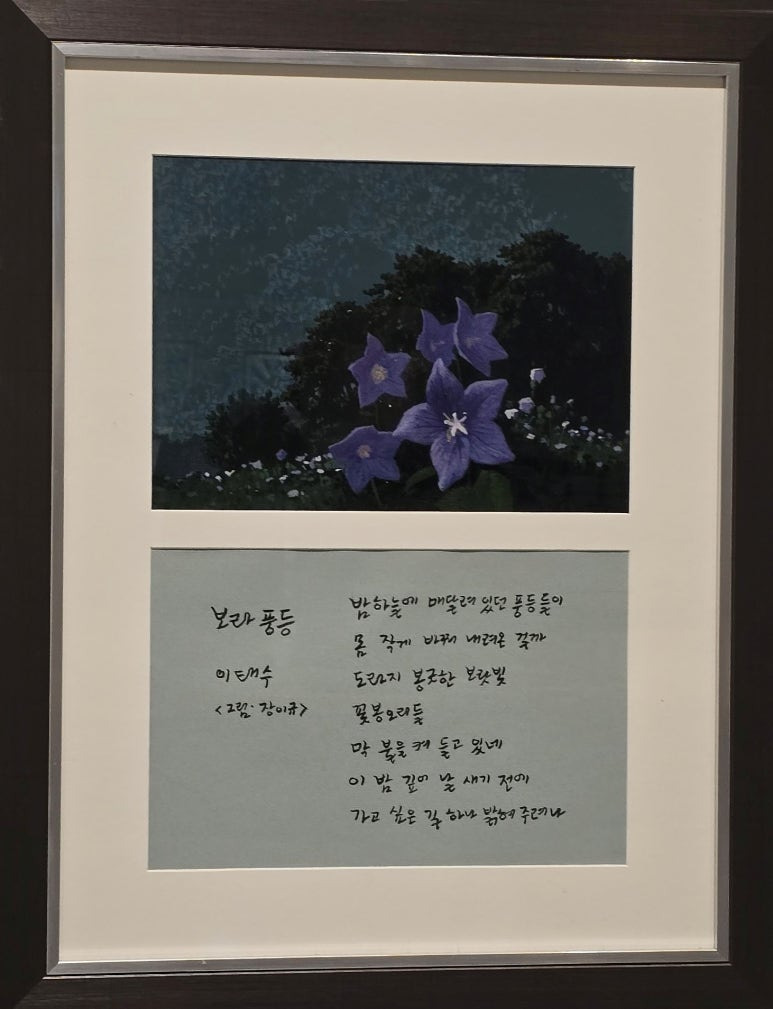 보라 풍등
이태수
<그림·장이규>
밤하늘에 매달려 있던 풍등들이
몸 작게 바꿔 내려온 걸까
도라지 봉긋한 보랏빛
꽃봉오리들
막 불을 켜 들고 있네
이 밤 깊어 날 새기 전에
가고 싶은 길 하나 밝혀 주려나